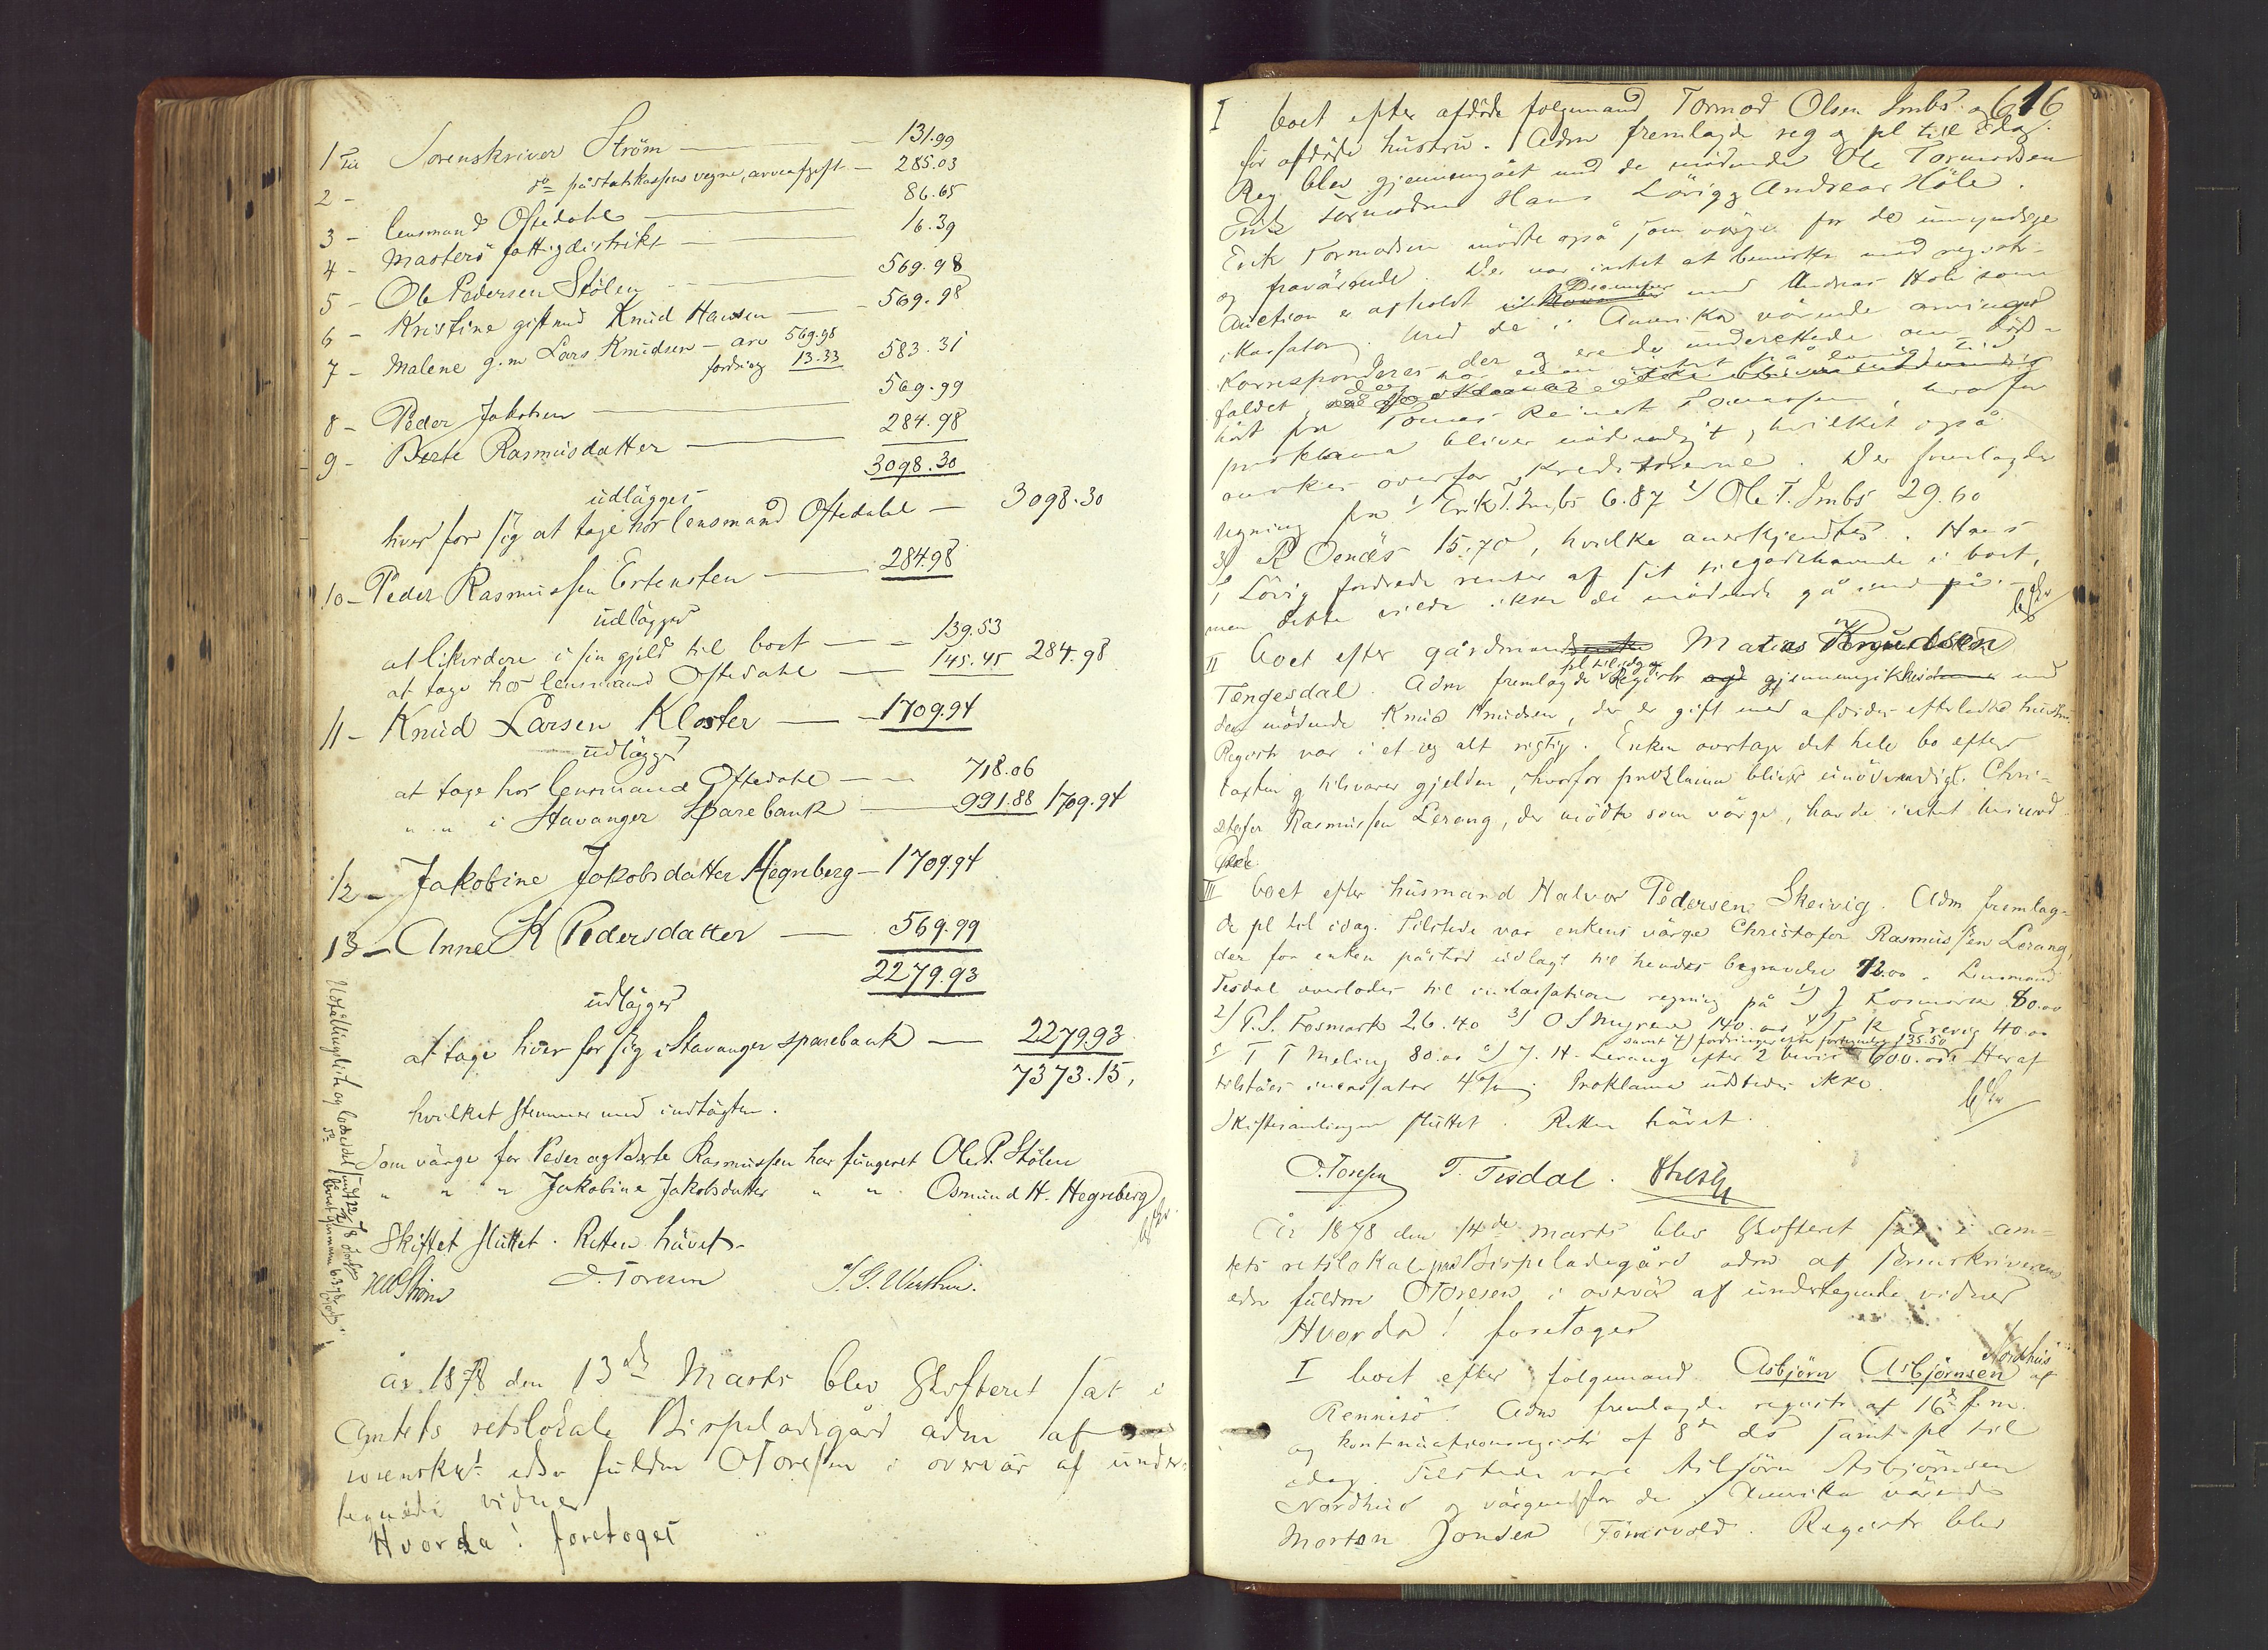 1 til Sorenskriver Ström — 131.99
2 - do påstatskassens vegne, arveafgift — 285.03
3 - lensmand Oftedahl — 86.65
4 - Masterö fattigdistrikt — 16.39
5 - Ole Pedersen Stölen — 569.98
6 - Kristine gift med Knud Hansen — 569.98
7 - Malene g.m Lars Knudsen - arv 569.98
fordring 13.33 583.31
8 - Peder Jakobsen — 569.99
9 - Berte Rasmusdatter — 284.98
3098.30
udlägges
hver for sig at tage hos lensmand Oftedahl — 3098.30
10 - Peder Rasmussen Ertensten — 284.98
udlägges
at likvidere i sin gjeld til boet — 139.53
at tage hos lensmand Oftedahl — 145.45 284.98
11 - Knud Larsen Kloster — 1709.94
udlägges
at tage hos lensmand Oftedahl — 718.06
" " i Stavanger Sparebank — 991.88 1709.94
12 - Jakobine Jakobsdatter Hegreberg - 1709.94
13 - Anne K Pedersdatter — 569.99
2279.93
udlägges
at tage hver for sig i Stavanger sparebank — 2279.93
7373.15,
hvilket stemmer med indtägten.
Som värge for Peder og Berte Rasmussen har fungeret Ole P. Stölen
" " " Jakobine Jakobsdatter " " Osmund H. Hegreberg
Skiftet sluttet. Retten hävet.
Ström O. Toresen
År 1878 den 13de Marts blev Skifteret sat i
Amtets retslokale Bispeladegård adm af
sorenskr. edsv fuldm OToresen i overvär af under-
tegnede vidner
Hvorda! foretoges
616
I boet efter afdöde folgemand Tormod Olsen Imbs og
för afdöde hustru. Adm fremlagde reg og pl til idag.
Reg blev gjennemgået med de mödende Ole Tormodsen
Erik Tormodsen Hans Lörig og Andreas Höle.
Erik Tormodsen mödte også som värge for de umyndige
og fraværende. Der var intet at bemærke med registr-
December
Auction er afholdt i med Andreas Höle som
ikassator. Med de i Amerika värende arvinger
korresponderes der og ere de underrettede om död-
faldet,
hört fra Tomas Reinert Tomassen, hvorfor
proklama bliver nödvendigt, hvilket også
önskes overfor kreditorerne. Der fremlagdes
regning fra 1/ Erik T. Imbs 6.87 2/ Ole T. Imbs 29.60
3/ R Oenäs 15.70, hvilke anerkjendtes. Hans
Lörig fordrede renter af sit tilgodehavende i boet,
men dette vilde ikke de mödende gå ind på.
II boet efter gårdmand Matias Knudsen
pl til idag og
Tengesdal. Adm fremlagde Registr gjennemgikkes med
den mödende Knud Knudsen, der er gift med afdödes efterladte hustru.
Registr var i et og alt rigtig. Enken overtager det hele bo efter
taxten og tilsvarer gjelden, hvorfor proklama bliver unödvendigt. Chri-
stofer Rasmussen Lerang, der mödte som värge, havde intet herimod
III boet efter husmand Halvor Pedersen Skeivig. Adm fremlag-
de pl til idag. Tilstede var enkens värge Christofer Rasmussen Lerang,
der for enken påstod udlagt til hendes begravelse 72.00. Lensmand
Tisdal overlodes til inkassation regning på 1/ J Fosmark 80.00
2/ P.S. Fosmark 26.40 3/ O S Myrene 140.00 4/ T K Erevig 40.00
samt 7/ fordringer efter fortegnelse 135.50
5/ T T Meling 80.00 6/ J. H. Lerang efter 2 bevis 600.00. Heraf
tilståes incassator 4%. Proklama udstedes ikke.
Skiftesamlingen sluttet. Retten hävet.
O. Toresen T. Tisdal.
År 1878 den 14de marts blev Skifteret sat i am-
tets retslokale på Bispeladegård adm af sorenskriverens
edsv fuldm OToresen i overvär af undertegnede vidner
Hvorda! foretoges
Nordhus
I boet efter folgemand Asbjörn Asbjörnsen af
Rennesö. Adm fremlagde registr af 16de f.m.
og kontinuationsregistr af 8de ds samt pl til
idag. Tilstede vare Asbjörn Asbjörnsen
Nordhus og värgen for de i Amerika värende
Morten Jonsen Registr blev